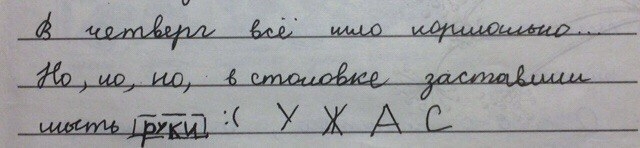 В четверг всё шло нормально...
Но, но, но, в столовке заставили
мыть руки :( У Ж А С